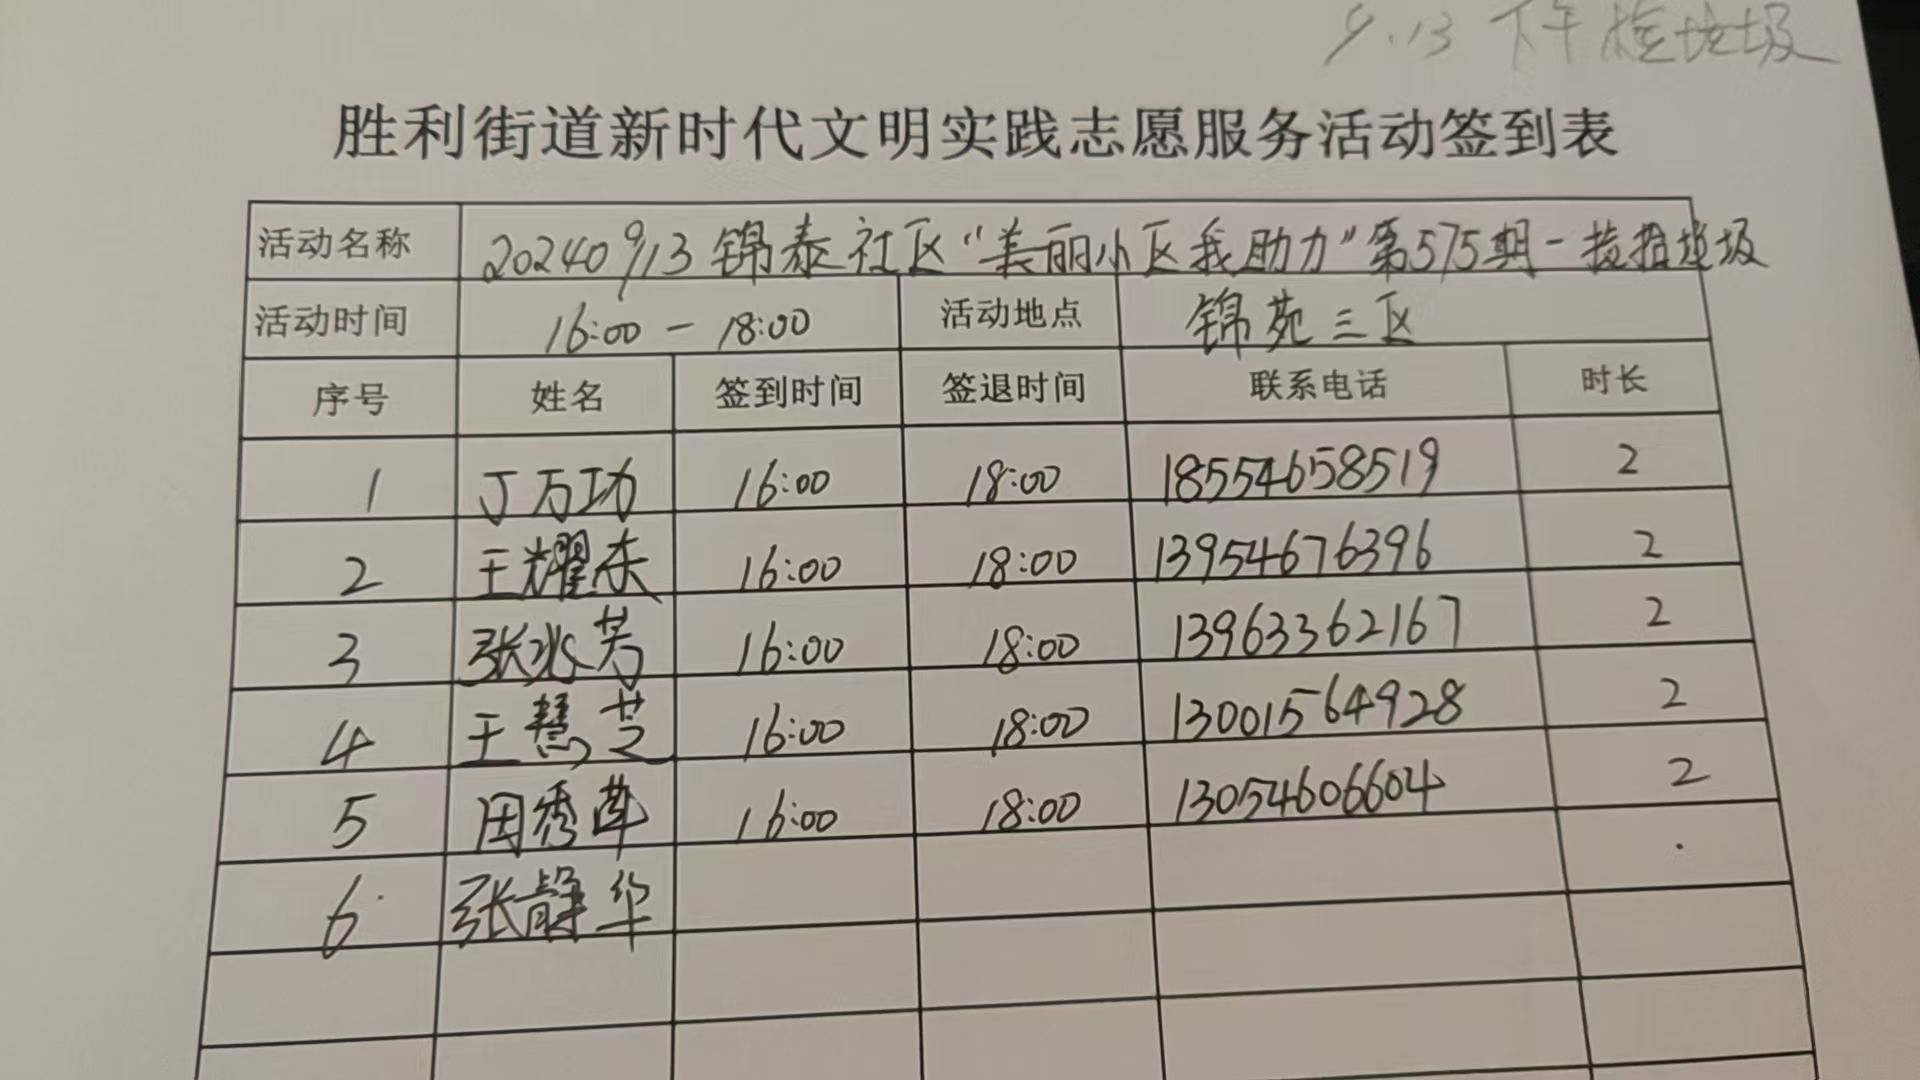 9.13 下午捡垃圾
胜利街道新时代文明实践志愿服务活动签到表
活动名称 20240913锦泰社区“美丽小区我助力”第575期-捡拾垃圾
活动时间 16:00-18:00 活动地点 锦苑三区
序号 姓名 签到时间 签退时间 联系电话 时长
1 丁万功 16:00 18:00 18554658519 2
2 王耀东 16:00 18:00 13954676396 2
3 张兆芳 16:00 18:00 13963362167 2
4 王慧芝 16:00 18:00 13001564928 2
5 田秀 16:00 18:00 13054606604 2
6 张静华